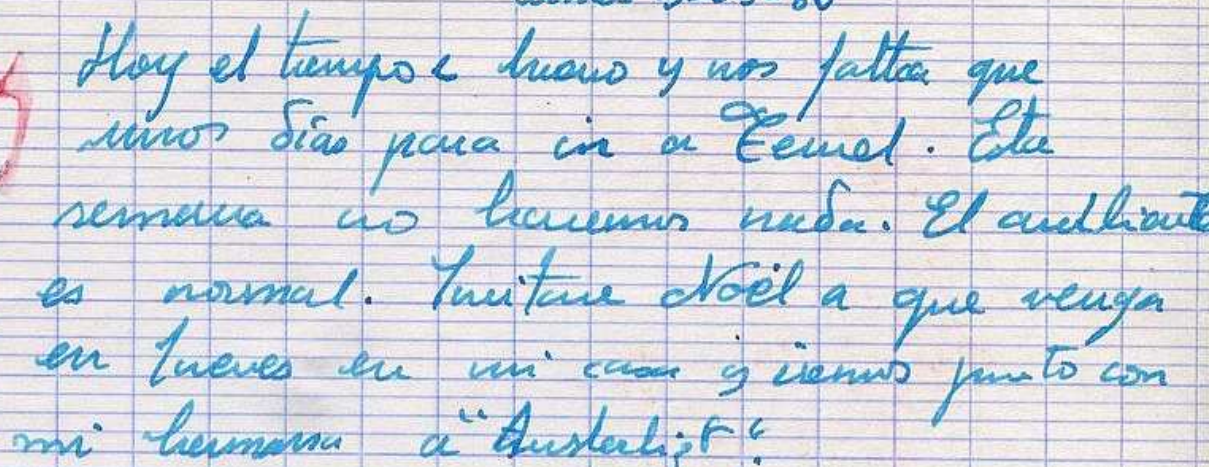 Hoy el tiempo e bueno y nos faltta que
unos días para ir a Teruel. Esta
semana no haremos nada. El ambiante
es normal. Invitare Noël a que venga
en Jueves en mi casa y iremos junto con
mi hermana a "Austerlist".